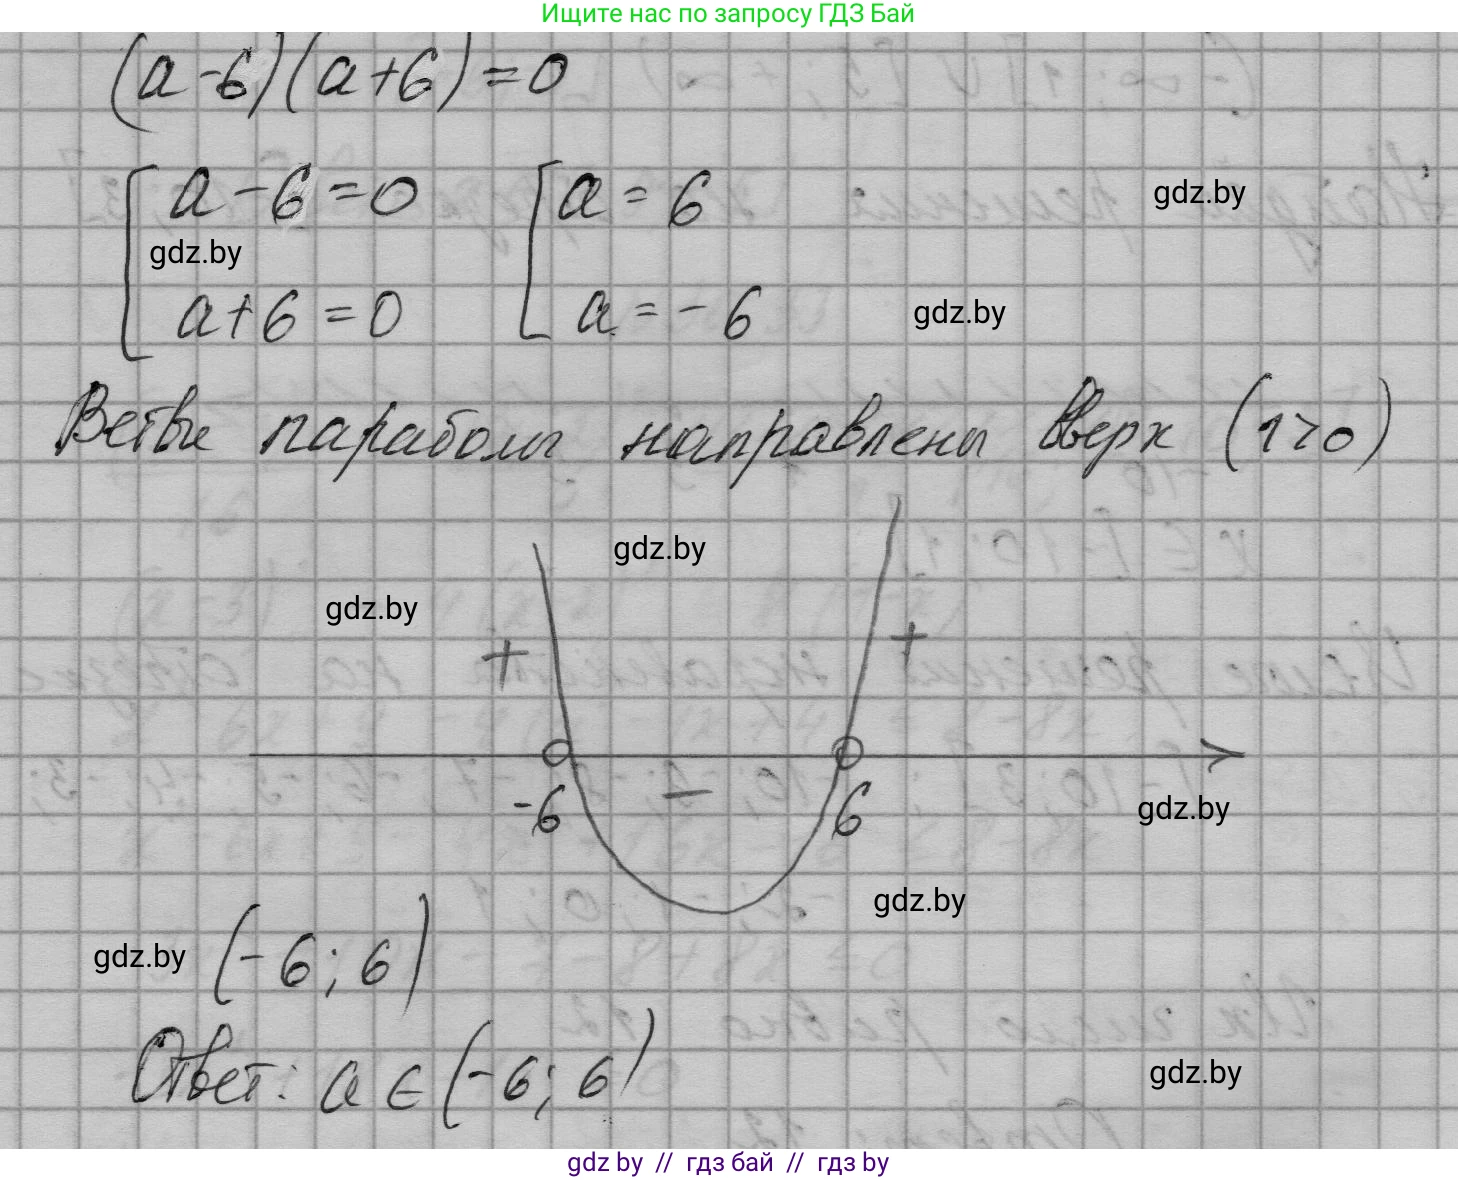 Ищите нас по запросу ГДЗ Бай
(a-6)(a+6)=0
a-6=0 a=6
gdz.by
gdz.by
a+6=0 a=-6
gdz.by
Ветви параболы направлены вверх (1>0)
gdz.by
gdz.by
+ +
-6 − 6
gdz.by
gdz.by
gdz.by (-6; 6)
Ответ: a ∈ (-6; 6)
gdz.by
gdz by // гдз бай // гдз by